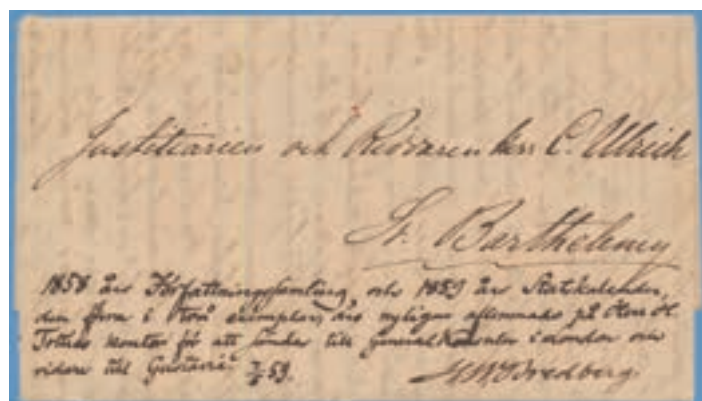 Justitiarien och Riddaren Herr C. Ulrich
St. Barthelemy
1858 års Författningssamling och 1859 års Statskalender,
den förra i två exemplar, äro nyligen aflemnade på Herr H.
Totties kontor för att sändas till General Konsuln i London och
vidare till Gustavia. 59.